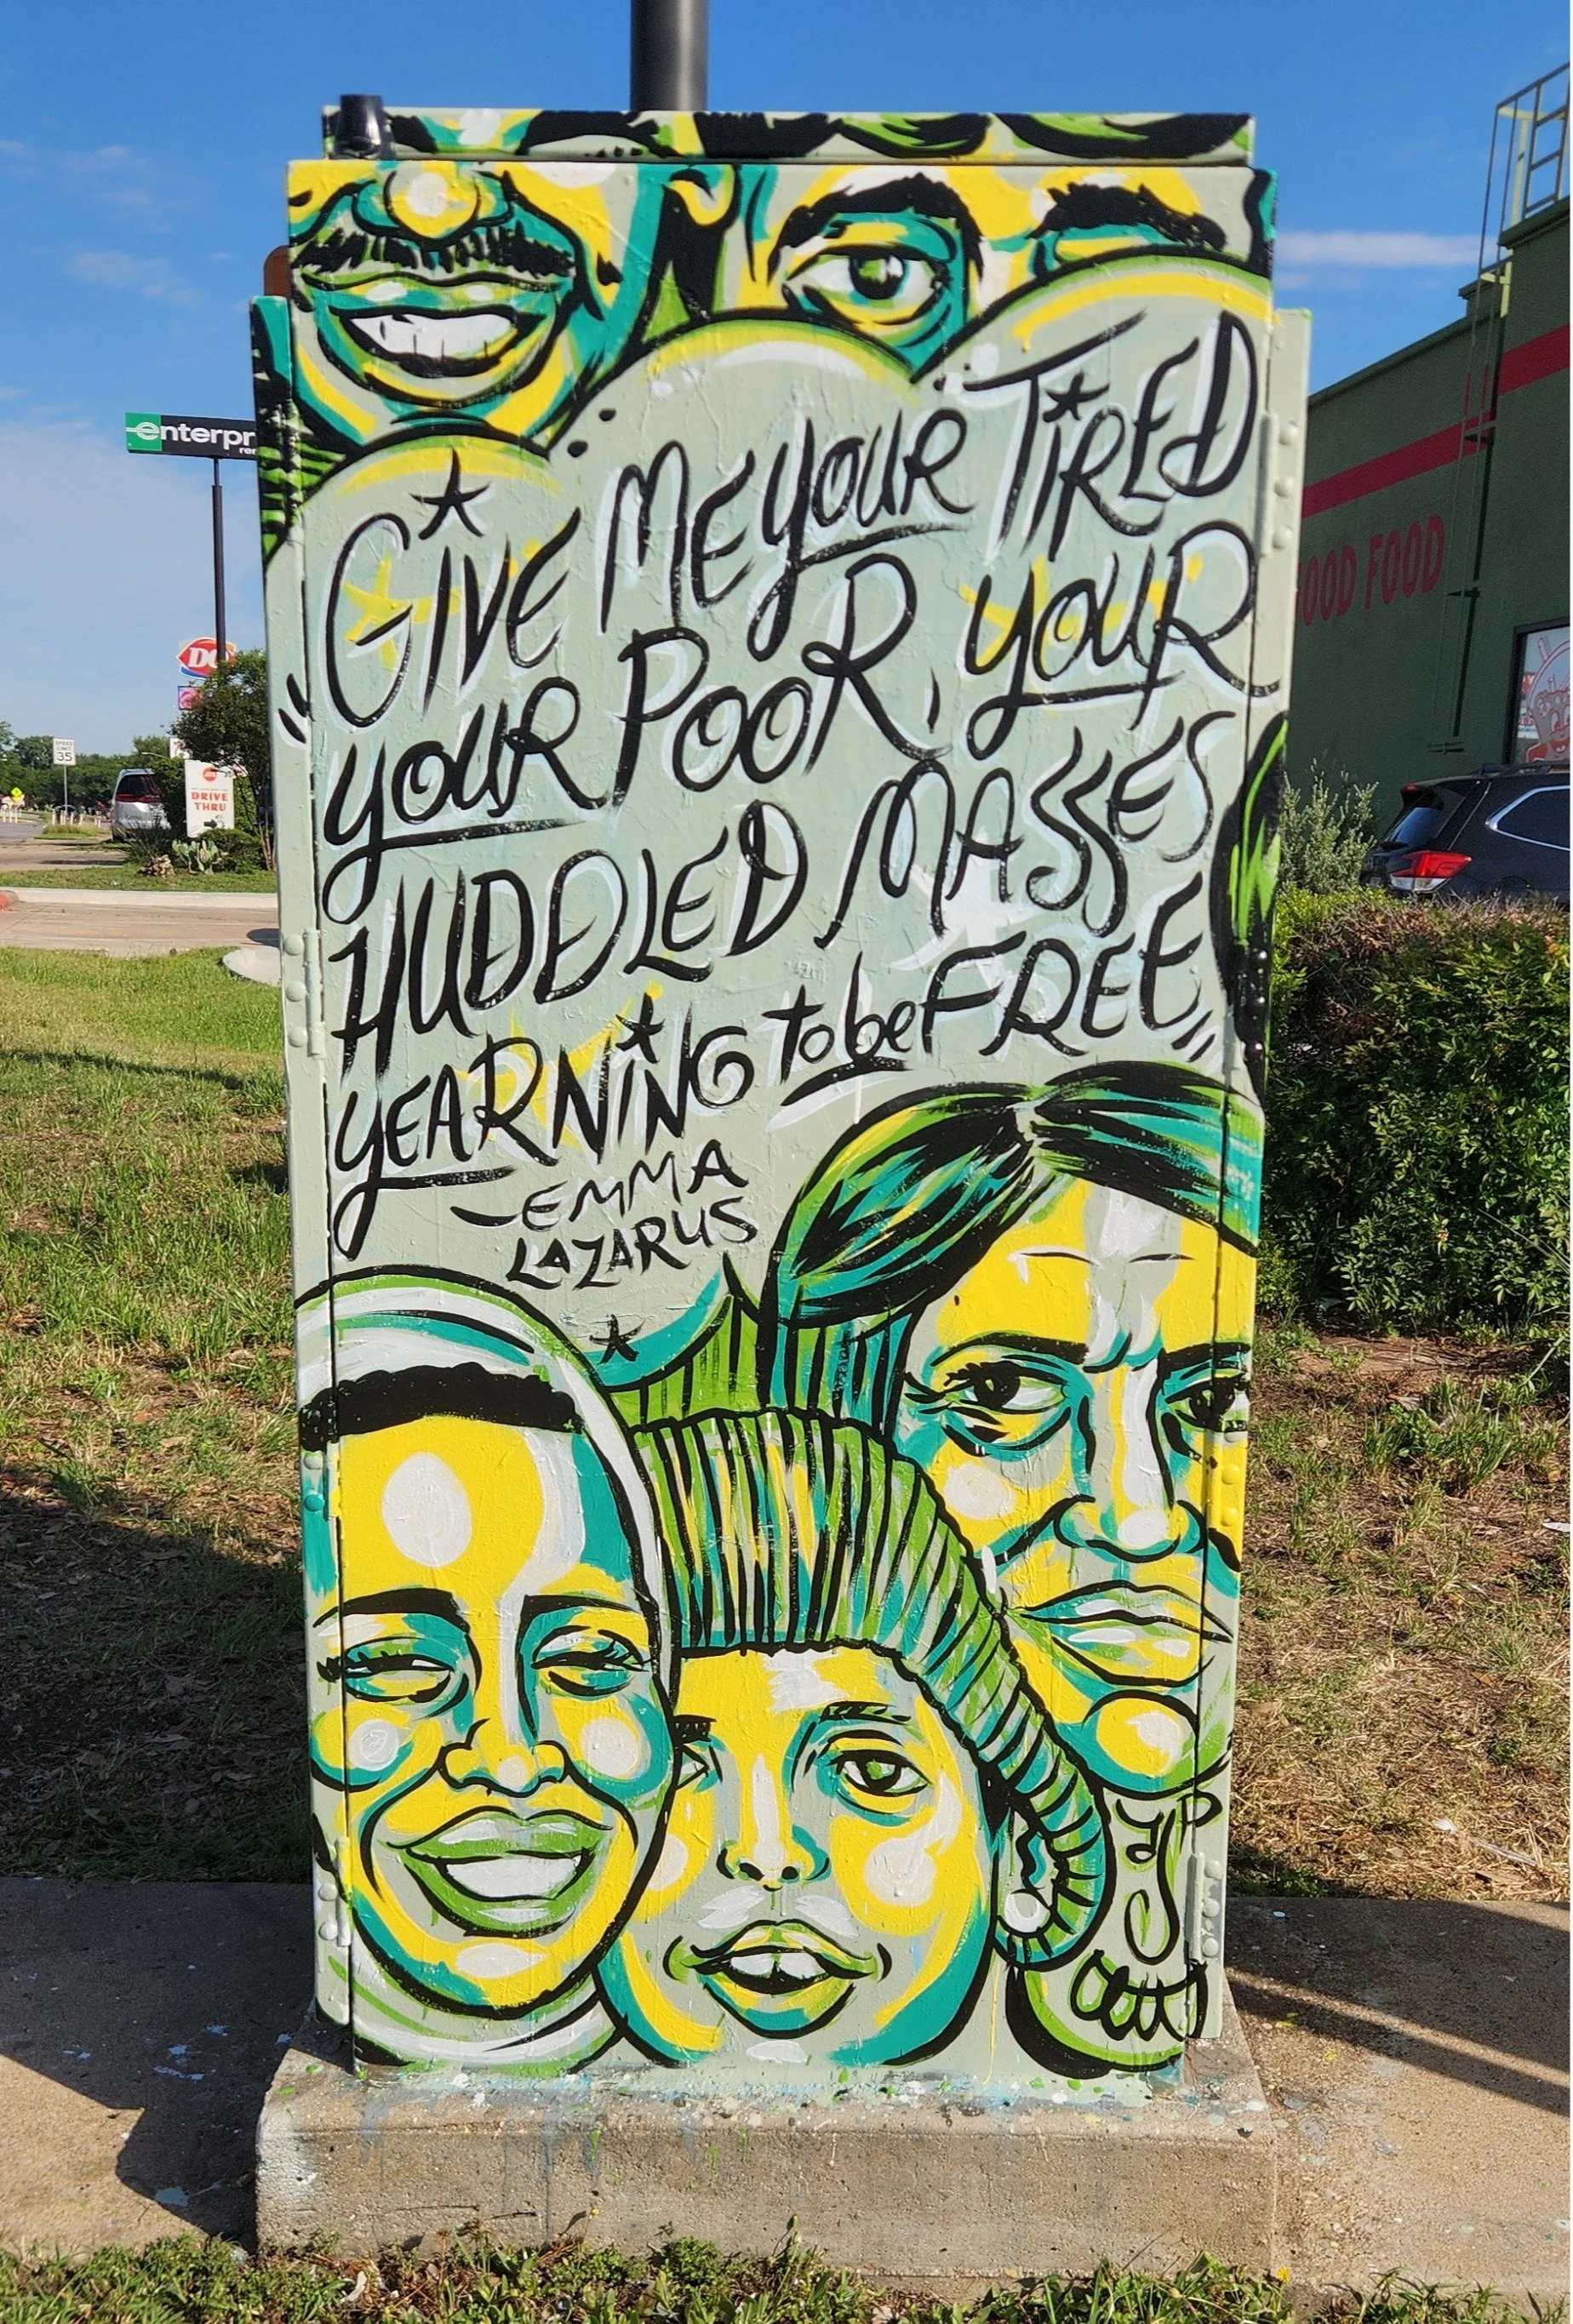 "GIVE ME YOUR TIRED
YOUR POOR, YOUR
HUDDLED MASSES
YEARNING to be FREE"
—EMMA
LAZARUS
enterpr
DQ
SPEED
LIMIT
35
DRIVE
THRU
OOD FOOD